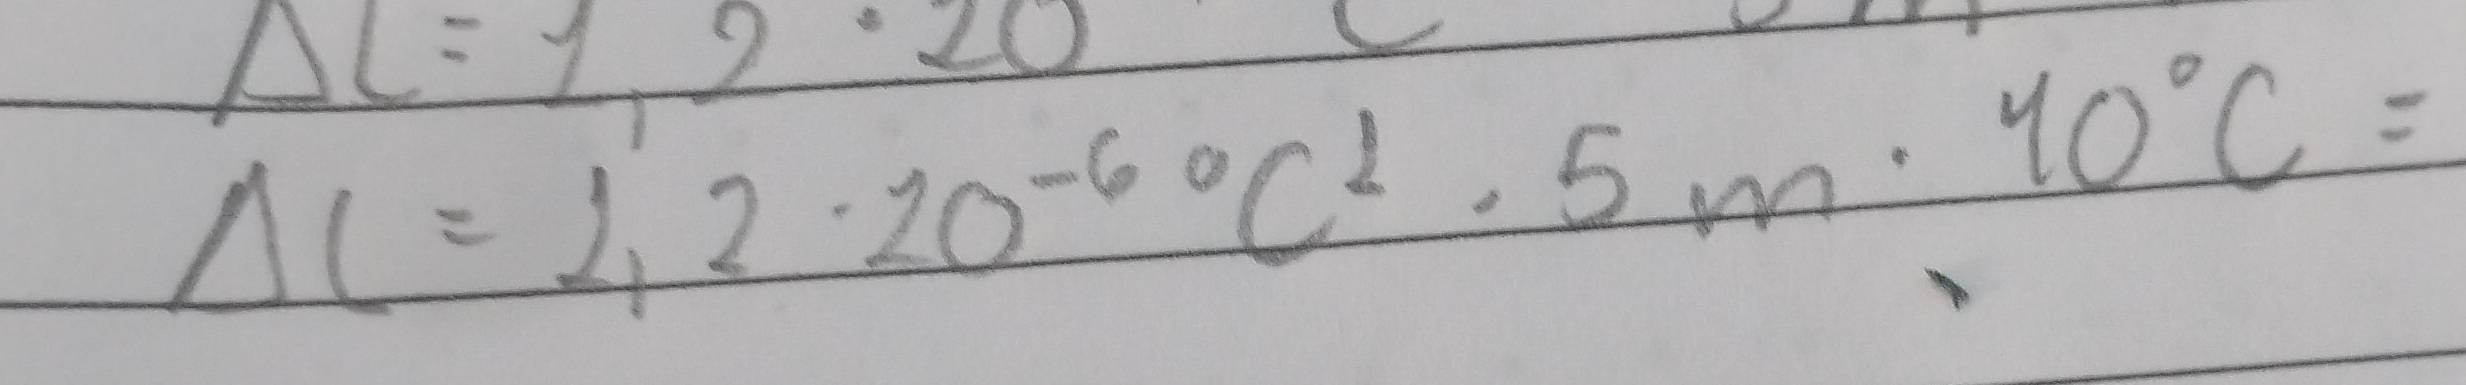 Δl = 1,2 · 10
Δl = 1,2 · 10⁻⁶ °C¹ · 5 m · 40°C =